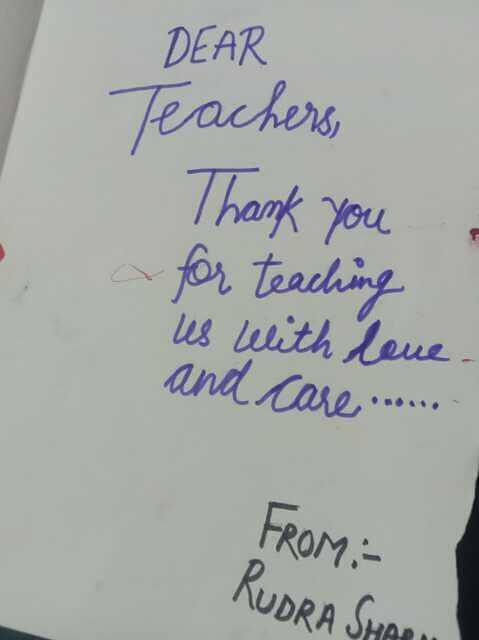 DEAR
Teachers,
Thank you
for teaching
us with love
and care......
FROM:-
RUDRA